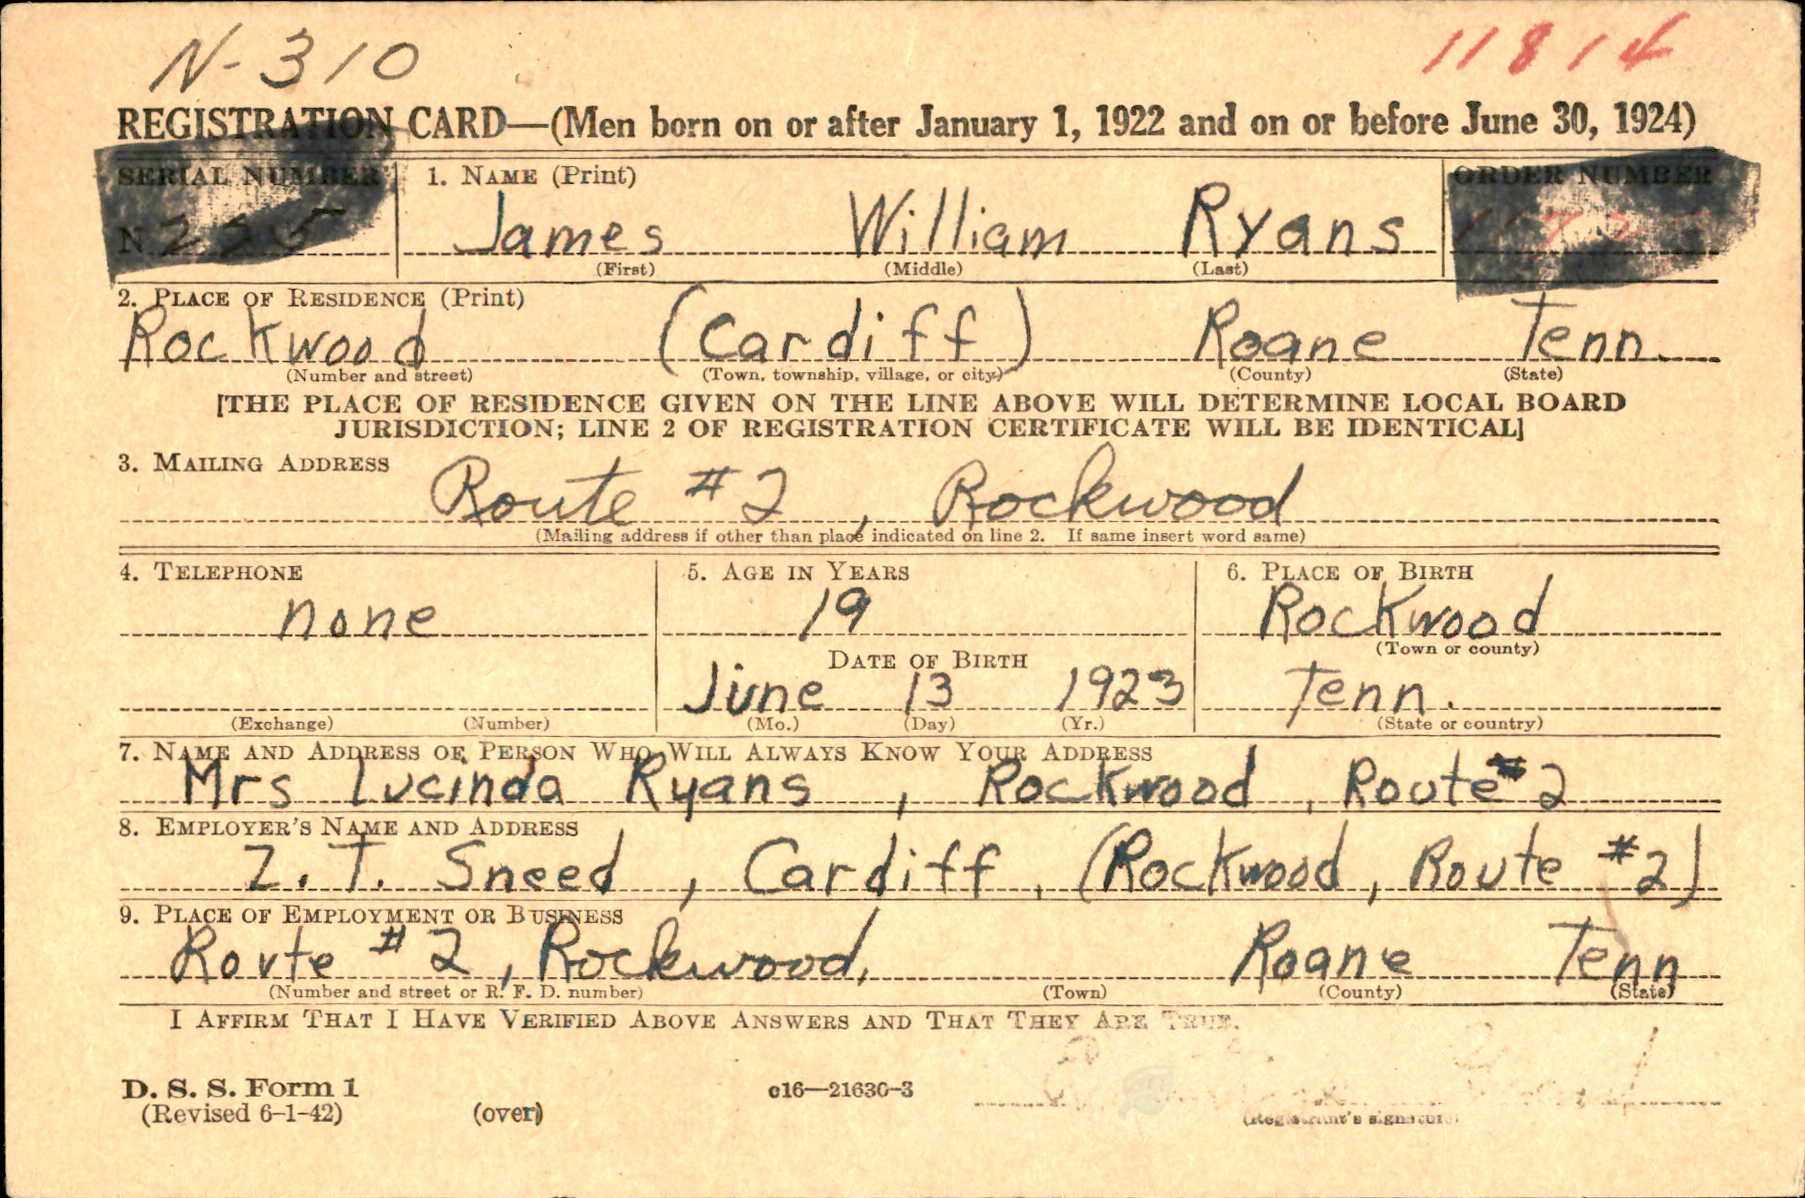 N-310 11814
REGISTRATION CARD—(Men born on or after January 1, 1922 and on or before June 30, 1924)
SERIAL NUMBER 1. NAME (Print) ORDER NUMBER
N 225 James William Ryans
(First) (Middle) (Last)
2. PLACE OF RESIDENCE (Print)
Rockwood (Cardiff) Roane Tenn.
(Number and street) (Town, township, village, or city) (County) (State)
[THE PLACE OF RESIDENCE GIVEN ON THE LINE ABOVE WILL DETERMINE LOCAL BOARD
JURISDICTION; LINE 2 OF REGISTRATION CERTIFICATE WILL BE IDENTICAL]
3. MAILING ADDRESS
Route #2, Rockwood
(Mailing address if other than place indicated on line 2. If same insert word same)
4. TELEPHONE 5. AGE IN YEARS 6. PLACE OF BIRTH
none 19 Rockwood
(Town or county)
DATE OF BIRTH
June 13 1923 Tenn.
(Exchange) (Number) (Mo.) (Day) (Yr.) (State or country)
7. NAME AND ADDRESS OF PERSON WHO WILL ALWAYS KNOW YOUR ADDRESS
Mrs Lucinda Ryans, Rockwood, Route #2
8. EMPLOYER'S NAME AND ADDRESS
Z. T. Sneed, Cardiff, (Rockwood, Route #2)
9. PLACE OF EMPLOYMENT OR BUSINESS
Route #2, Rockwood, Roane Tenn
(Number and street or R. F. D. number) (Town) (County) (State)
I AFFIRM THAT I HAVE VERIFIED ABOVE ANSWERS AND THAT THEY ARE TRUE.
D. S. S. Form 1 c16—21630-3
(Revised 6-1-42) (over) (Registrant's signature)